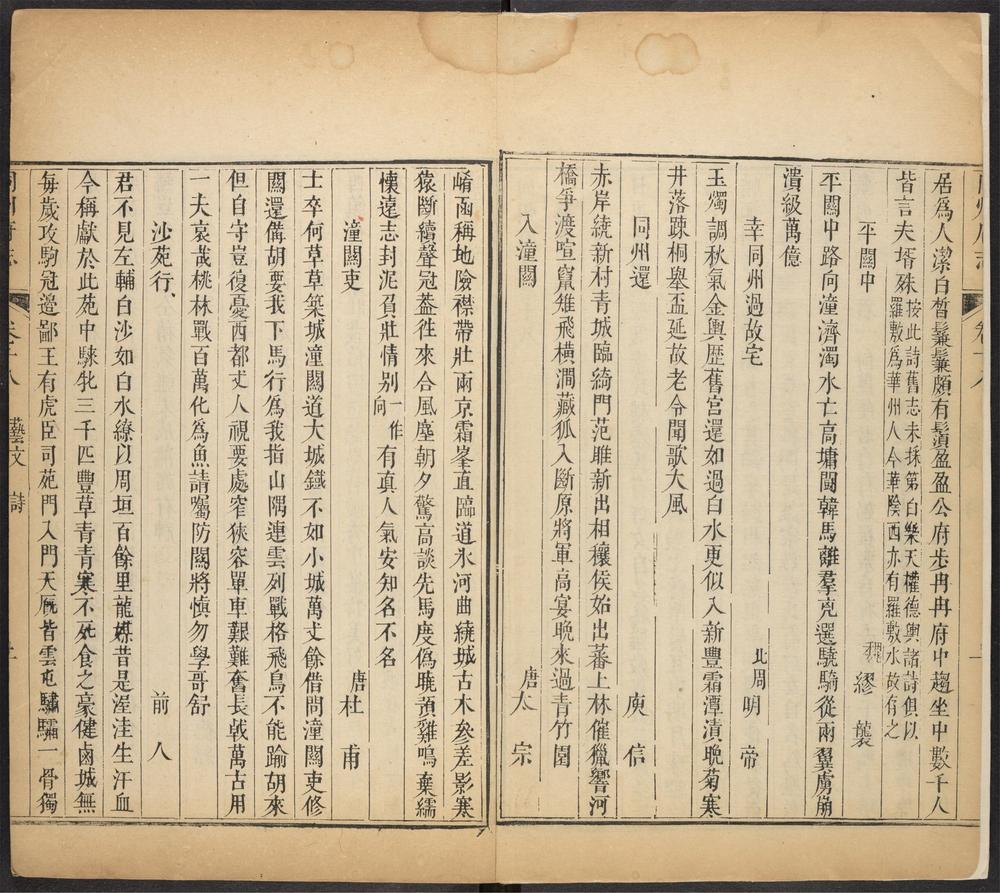 居為人潔白皙鬑鬑頗有鬚盈盈公府步冉冉府中趨坐中數千人
皆言夫壻殊按此詩舊志未採第白樂天權德輿諸詩俱以
羅敷為華州人今華陰西亦有羅敷水故存之
平關中　魏繆襲
平關中路向潼濟濁水亡高墉鬬韓馬離羣兇選驍騎從兩翼虜崩
潰級萬億
幸同州過故宅　北周明帝
玉燭調秋氣金輿歷舊宮還如過白水更似入新豐霜潭漬晚菊寒
井落疎桐舉盃延故老令聞歌大風
同州還　庾信
赤岸繞新村青城臨綺門范雎新出相穰侯始出蕃上林催獵響河
橋爭渡喧竄雉飛橫澗藏狐入斷原將軍高宴晚來過青竹園
入潼關　唐太宗
崤函稱地險襟帶壯兩京霜峯直臨道氷河曲繞城古木參差影寒
猿斷續聲冠葢徃來合風塵朝夕驚高談先馬度偽曉預雞鳴棄繻
懷遠志封泥負壯情别一作向有真人氣安知名不名
潼關吏　唐杜甫
士卒何草草築城潼關道大城鐵不如小城萬丈餘借問潼關吏修
關還備胡要我下馬行為我指山隅連雲列戰格飛鳥不能踰胡來
但自守豈復憂西都丈人視要處窄狹容單車艱難奮長戟萬古用
一夫哀哉桃林戰百萬化為魚請囑防關將慎勿學哥舒
沙苑行、　前人
君不見左輔白沙如白水繚以周垣百餘里龍媒昔是渥洼生汗血
今稱獻於此苑中騋牝三千匹豐草青青寒不死食之豪健鹵城無
毎歲攻駒冠邉鄙王有虎臣司苑門入門天厩皆雲屯驌驦一骨獨
卷十八　藝文　詩